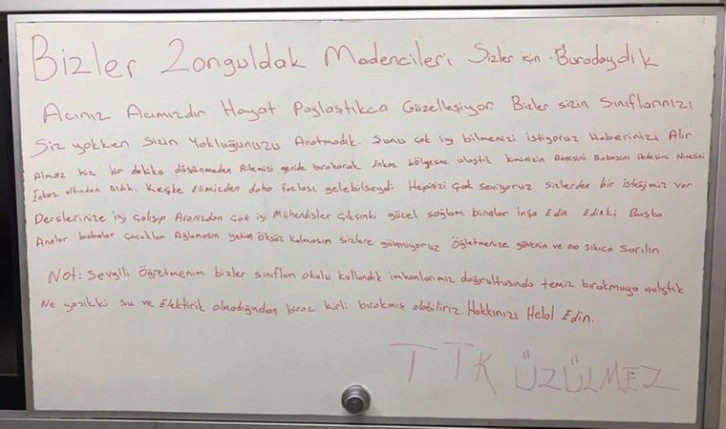 Bizler Zonguldak Madencileri Sizler için Buradaydık
Acınız Acımızdır Hayat Paylaştıkca Güzelleşiyor Bizler sizin Sınıflarınızı
Siz yokken Sizin Yokluğunuzu Aratmadık. Şunu çok iyi bilmenizi istiyoruz Haberinizi Alır
Almaz hiç bir dakika düşünmeden Ailemizi geride bırakarak Enkaz bölgesine ulaştık kimimizin Annesini Babasını Dedesini Ninesini
Enkaz altından aldık. Keşke Elimizden daha fazlası gelebilseydi Hepinizi çok Seviyoruz Sizlerden bir isteğimiz var
Derslerinize iyi çalışıp Aranızdan çok iyi Mühendisler çıksınki güzel sağlam binalar inşa Edin Edinki Başka
Analar babalar çocukları Ağlamasın yetim Öksüz kalmasın sizlere güveniyoruz Öğretmenize güvenin ve ona sıkıca Sarılın
Not: Sevgili Öğretmenim bizler sınıfları okulu kullandık imkanlarımız doğrultusunda temiz bırakmaya çalıştık
Ne yazıkki su ve Elektirik olmadığından biraz kirli bırakmış olabiliriz. Hakkınızı Helal Edin.
TTK ÜZÜLMEZ